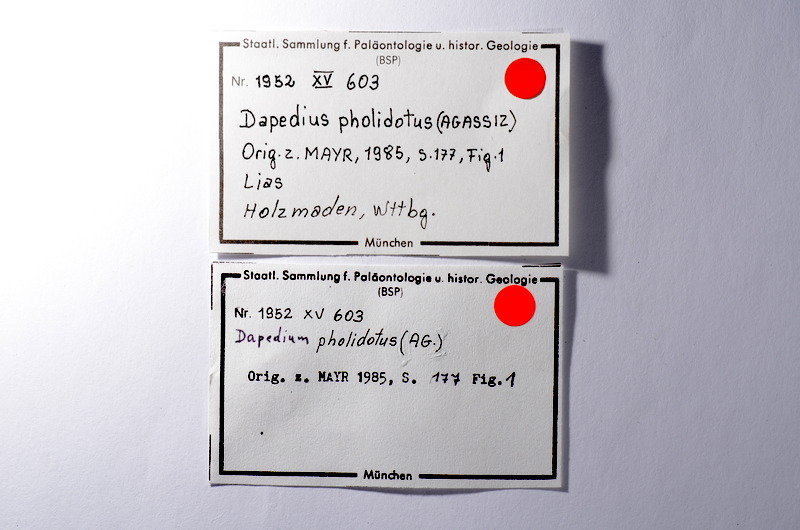 Staatl. Sammlung f. Paläontologie u. histor. Geologie
(BSP)
Nr. 1952 XV 603
Dapedius pholidotus (AGASSIZ)
Orig. z. MAYR, 1985, S. 177, Fig. 1
Lias
Holzmaden, Wttbg.
München
Staatl. Sammlung f. Paläontologie u. histor. Geologie
(BSP)
Nr. 1952 XV 603
Dapedium pholidotus (AG.)
Orig. z. MAYR 1985, S. 177 Fig. 1
München